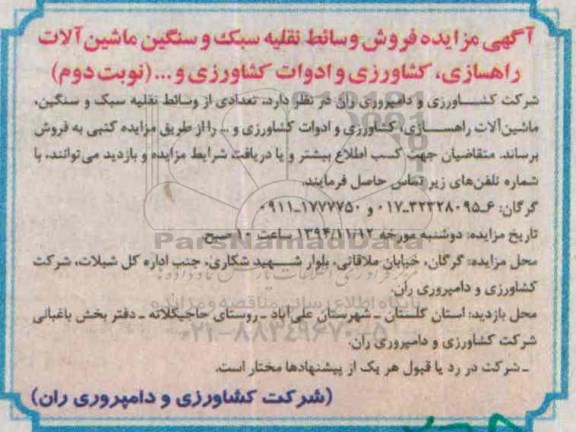 آگهی مزایده فروش وسائط نقلیه سبک و سنگین ماشین آلات
راهسازی، کشاورزی و ادوات کشاورزی و ... (نوبت دوم)
شرکت کشاورزی و دامپروری ران در نظر دارد، تعدادی از وسائط نقلیه سبک و سنگین،
ماشین آلات راهسازی، کشاورزی و ادوات کشاورزی و ... را از طریق مزایده کتبی به فروش
برساند. متقاضیان جهت کسب اطلاع بیشتر و یا دریافت شرایط مزایده و بازدید می‌توانند، با
شماره تلفن‌های زیر تماس حاصل فرمایند.
گرگان: ۶-۳۲۳۲۸۰۹۵-۰۱۷ و ۱۷۷۷۷۵۰-۰۹۱۱
تاریخ مزایده: دوشنبه مورخه ۱۳۹۴/۱۱/۱۲ ساعت ۱۰ صبح.
ParsNamadData
محل مزایده: گرگان، خیابان ملاقاتی، بلوار شهید شکاری، جنب اداره کل شیلات، شرکت
کشاورزی و دامپروری ران.
پایگاه اطلاع رسانی مناقصه و مزایده
محل بازدید: استان گلستان - شهرستان علی‌آباد - روستای حاجیکلاته - دفتر بخش باغبانی
شرکت کشاورزی و دامپروری ران.
۰۲۱-۸۸۳۴۹۶۷۰-۵
- شرکت در رد یا قبول هر یک از پیشنهادها مختار است.
(شرکت کشاورزی و دامپروری ران)